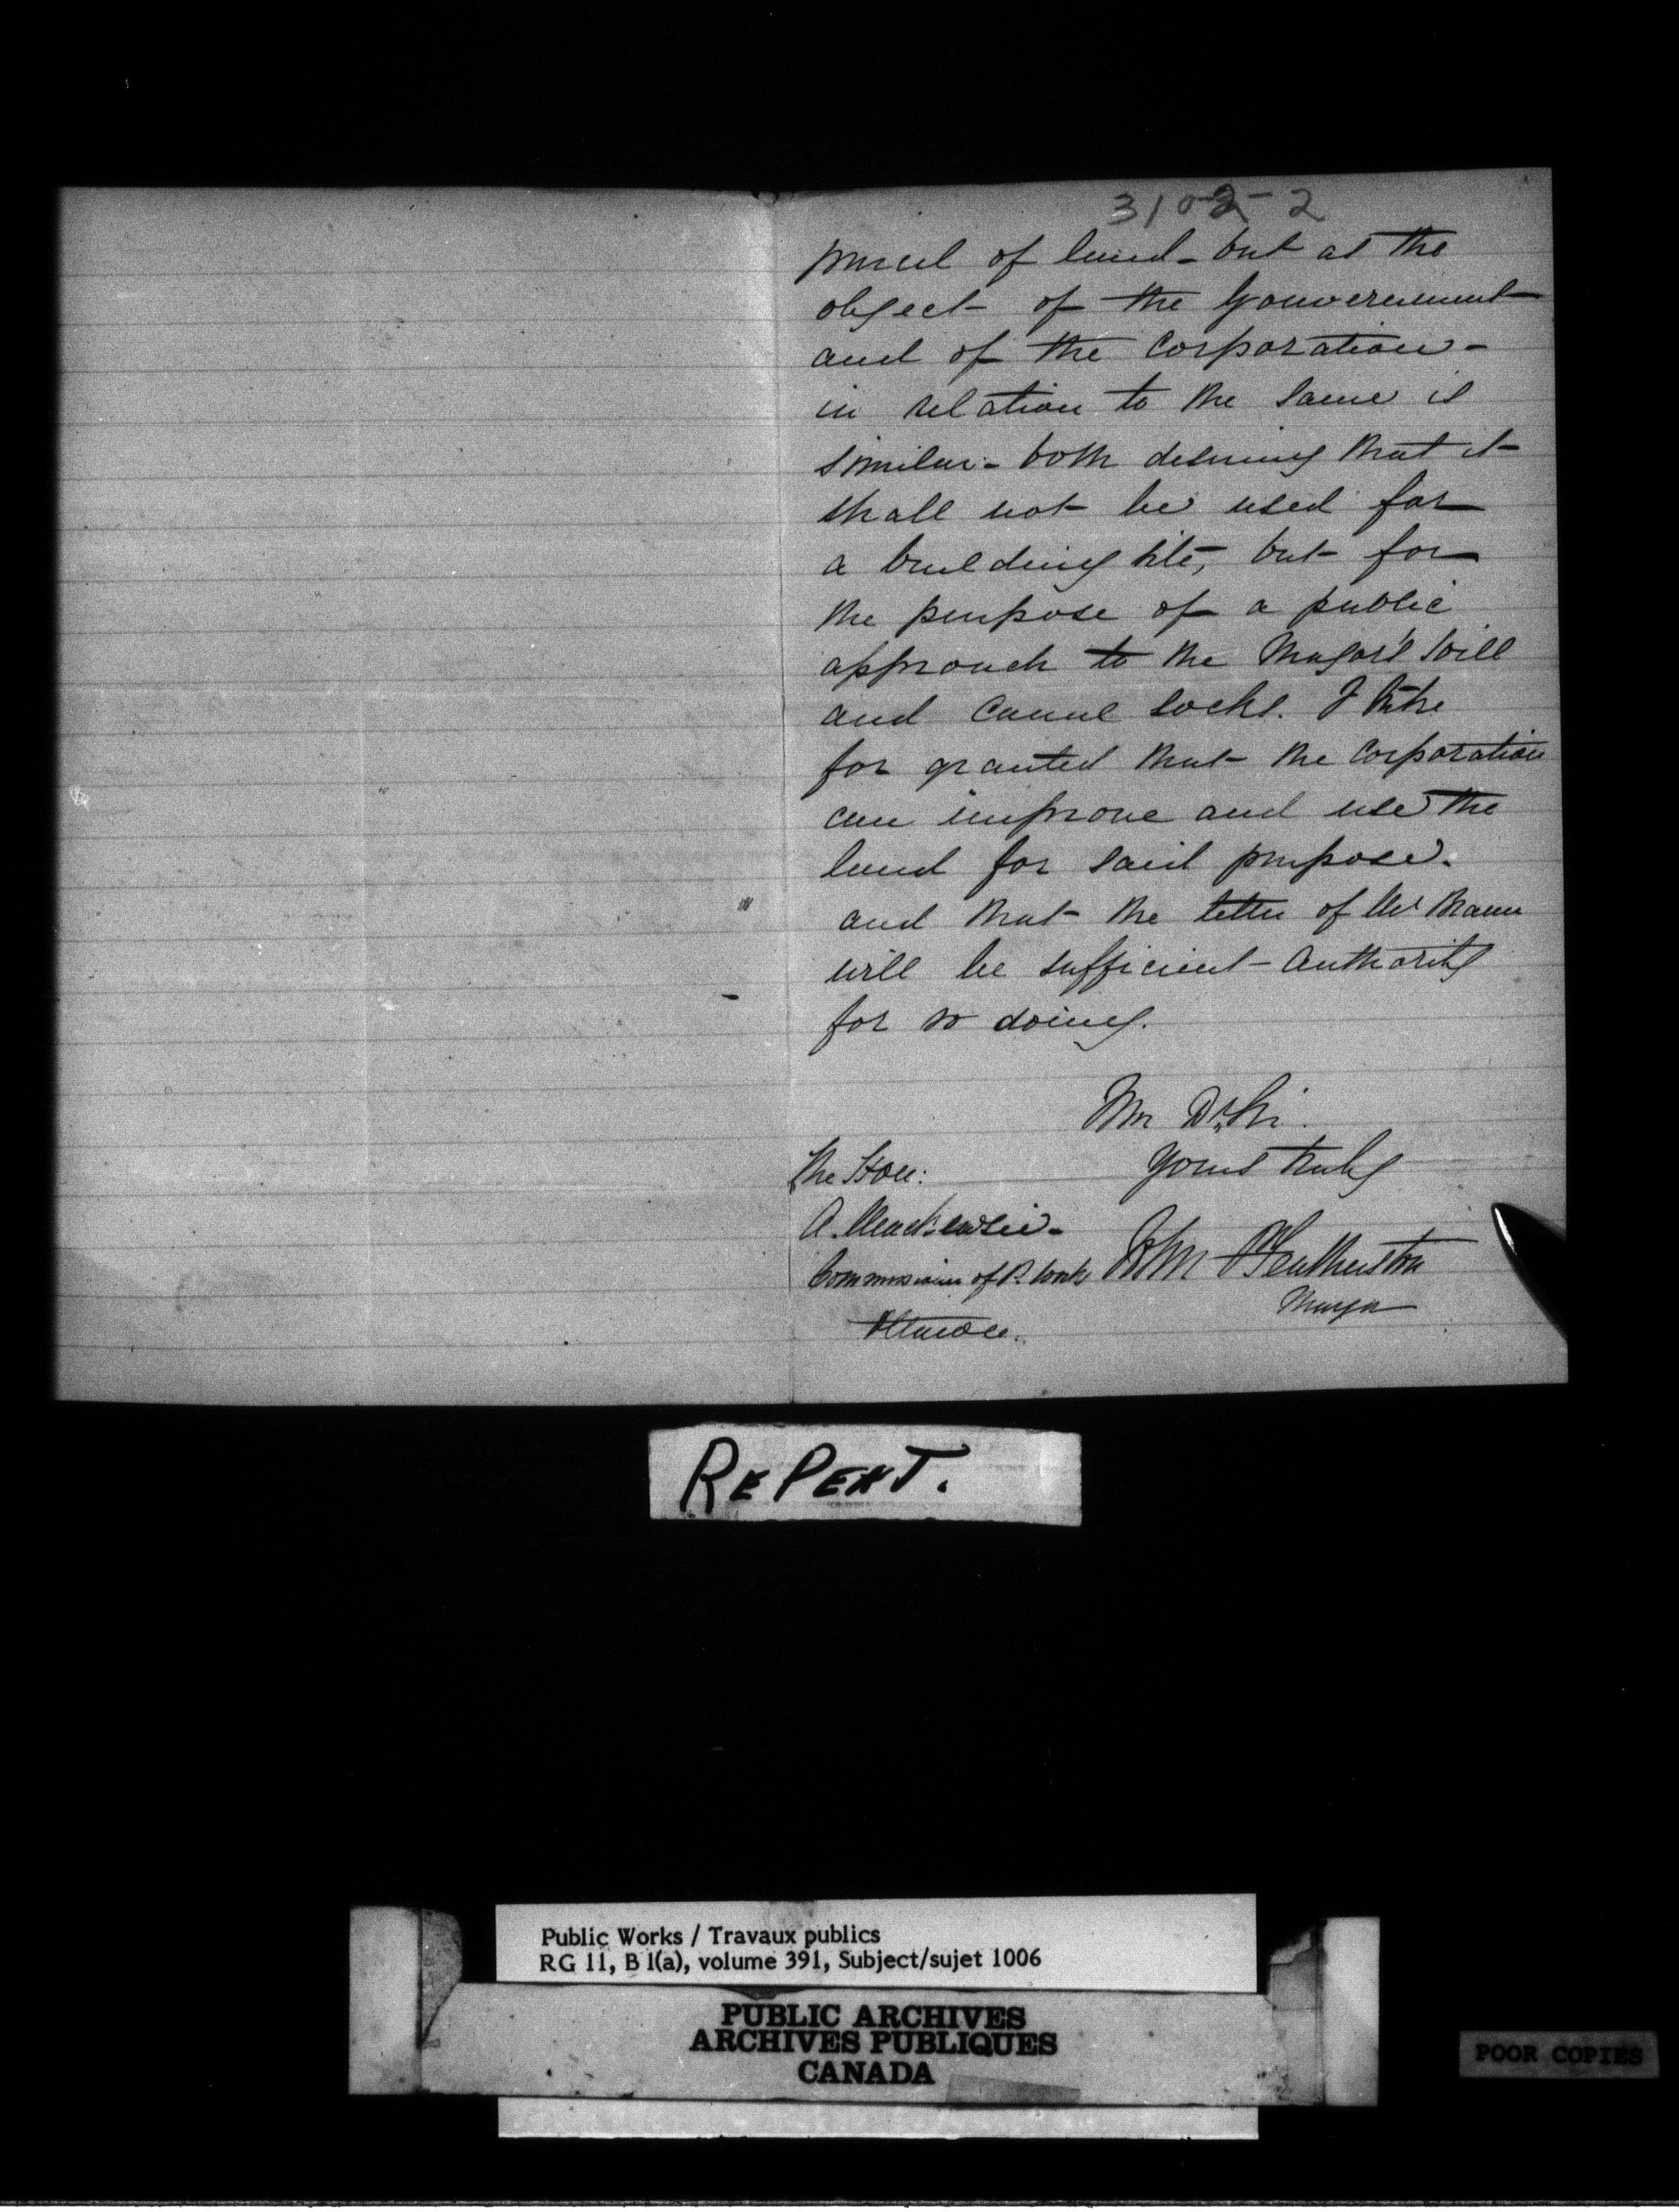 3102-2
parcel of land - but as the
object of the Gouvernment
and of the Corporation -
in relation to the same is
similar - both desiring that it
shall not be used for
a building site, but for
the purpose of a public
approach to the Major's Hill
and Canal Locks. I take
for granted that the Corporation
can improve and use the
land for said purpose.
and that the letter of Mr Braun
will be sufficient Authority
for so doing.
My Dr Sir.
Yours truly
The Hon:
A. Mackenzie -
Commissioner of P. Works
Ottawa.
John P Featherston
Mayor
REPEAT.
Public Works / Travaux publics
RG 11, B 1(a), volume 391, Subject/sujet 1006
PUBLIC ARCHIVES
ARCHIVES PUBLIQUES
CANADA
POOR COPIES